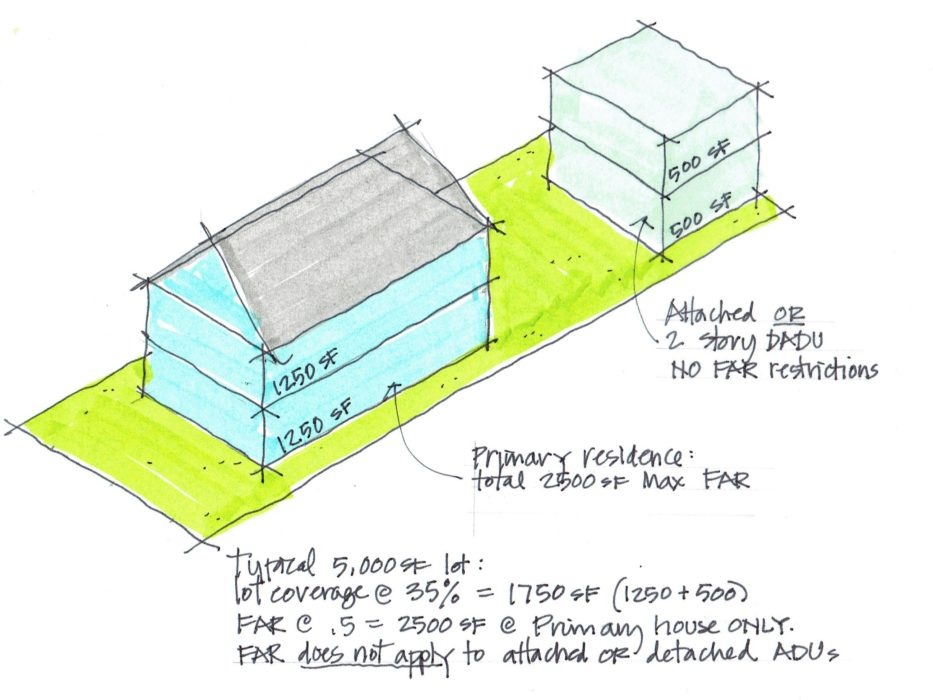 500 SF
500 SF
Attached OR
2 story DADU
NO FAR restrictions
1250 SF
1250 SF
Primary residence:
total 2500 SF Max FAR
Typical 5,000 SF lot:
lot coverage @ 35% = 1750 SF (1250 + 500)
FAR @ .5 = 2500 SF @ Primary house ONLY.
FAR does not apply to attached OR detached ADUs